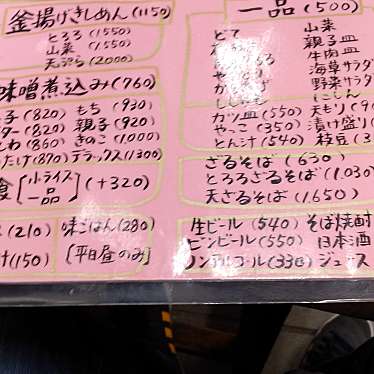 釜揚げきしめん(1150)
とろろ(1550)
山菜(1,550)
天ぷら(2000)
味噌煮込み(760)
子(820) もち(930)
ター(820) 親子(920)
とわ(860) きのこ(1,000)
たけ(870) デラックス(1300)
食[小ライス 一品](+320)
(210) 味ごはん(280)
(150) [平日昼のみ]
一品(500)
どて 山菜
親子皿
牛肉皿
海草サラダ
野菜サラダ
ししゃも にしん
カツ皿(550) 天もり(9
やっこ(350) 漬け盛り(
とん汁(540) 枝豆(3
ざるそば(630)
とろろざるそば(1,030
天ざるそば(1,650)
生ビール(540) そば焼酎
ビンビール(550) 日本酒
ノンアルコール(330) ジュース